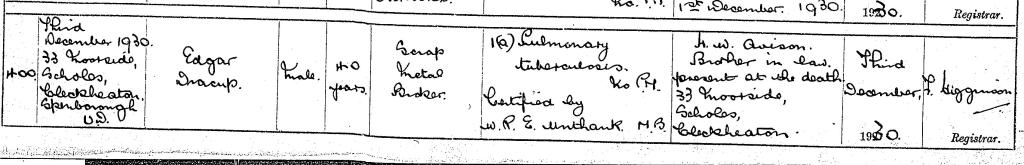 1st December. 1930.
1930.
Registrar.
400
Third
December 1930.
33 Moorside,
Scholes,
Cleckheaton.
Spenborough
U.D.
Edgar
Dracup.
Male.
40
years.
Scrap
Metal
Broker.
1(a) Pulmonary
tuberculosis.
No P.M.
Certified by
W. P. E. Unthank M.B.
H. W. Avison.
Brother in law.
present at the death
33 Moorside,
Scholes,
Cleckheaton.
Third
December,
1930.
Higginson
Registrar.